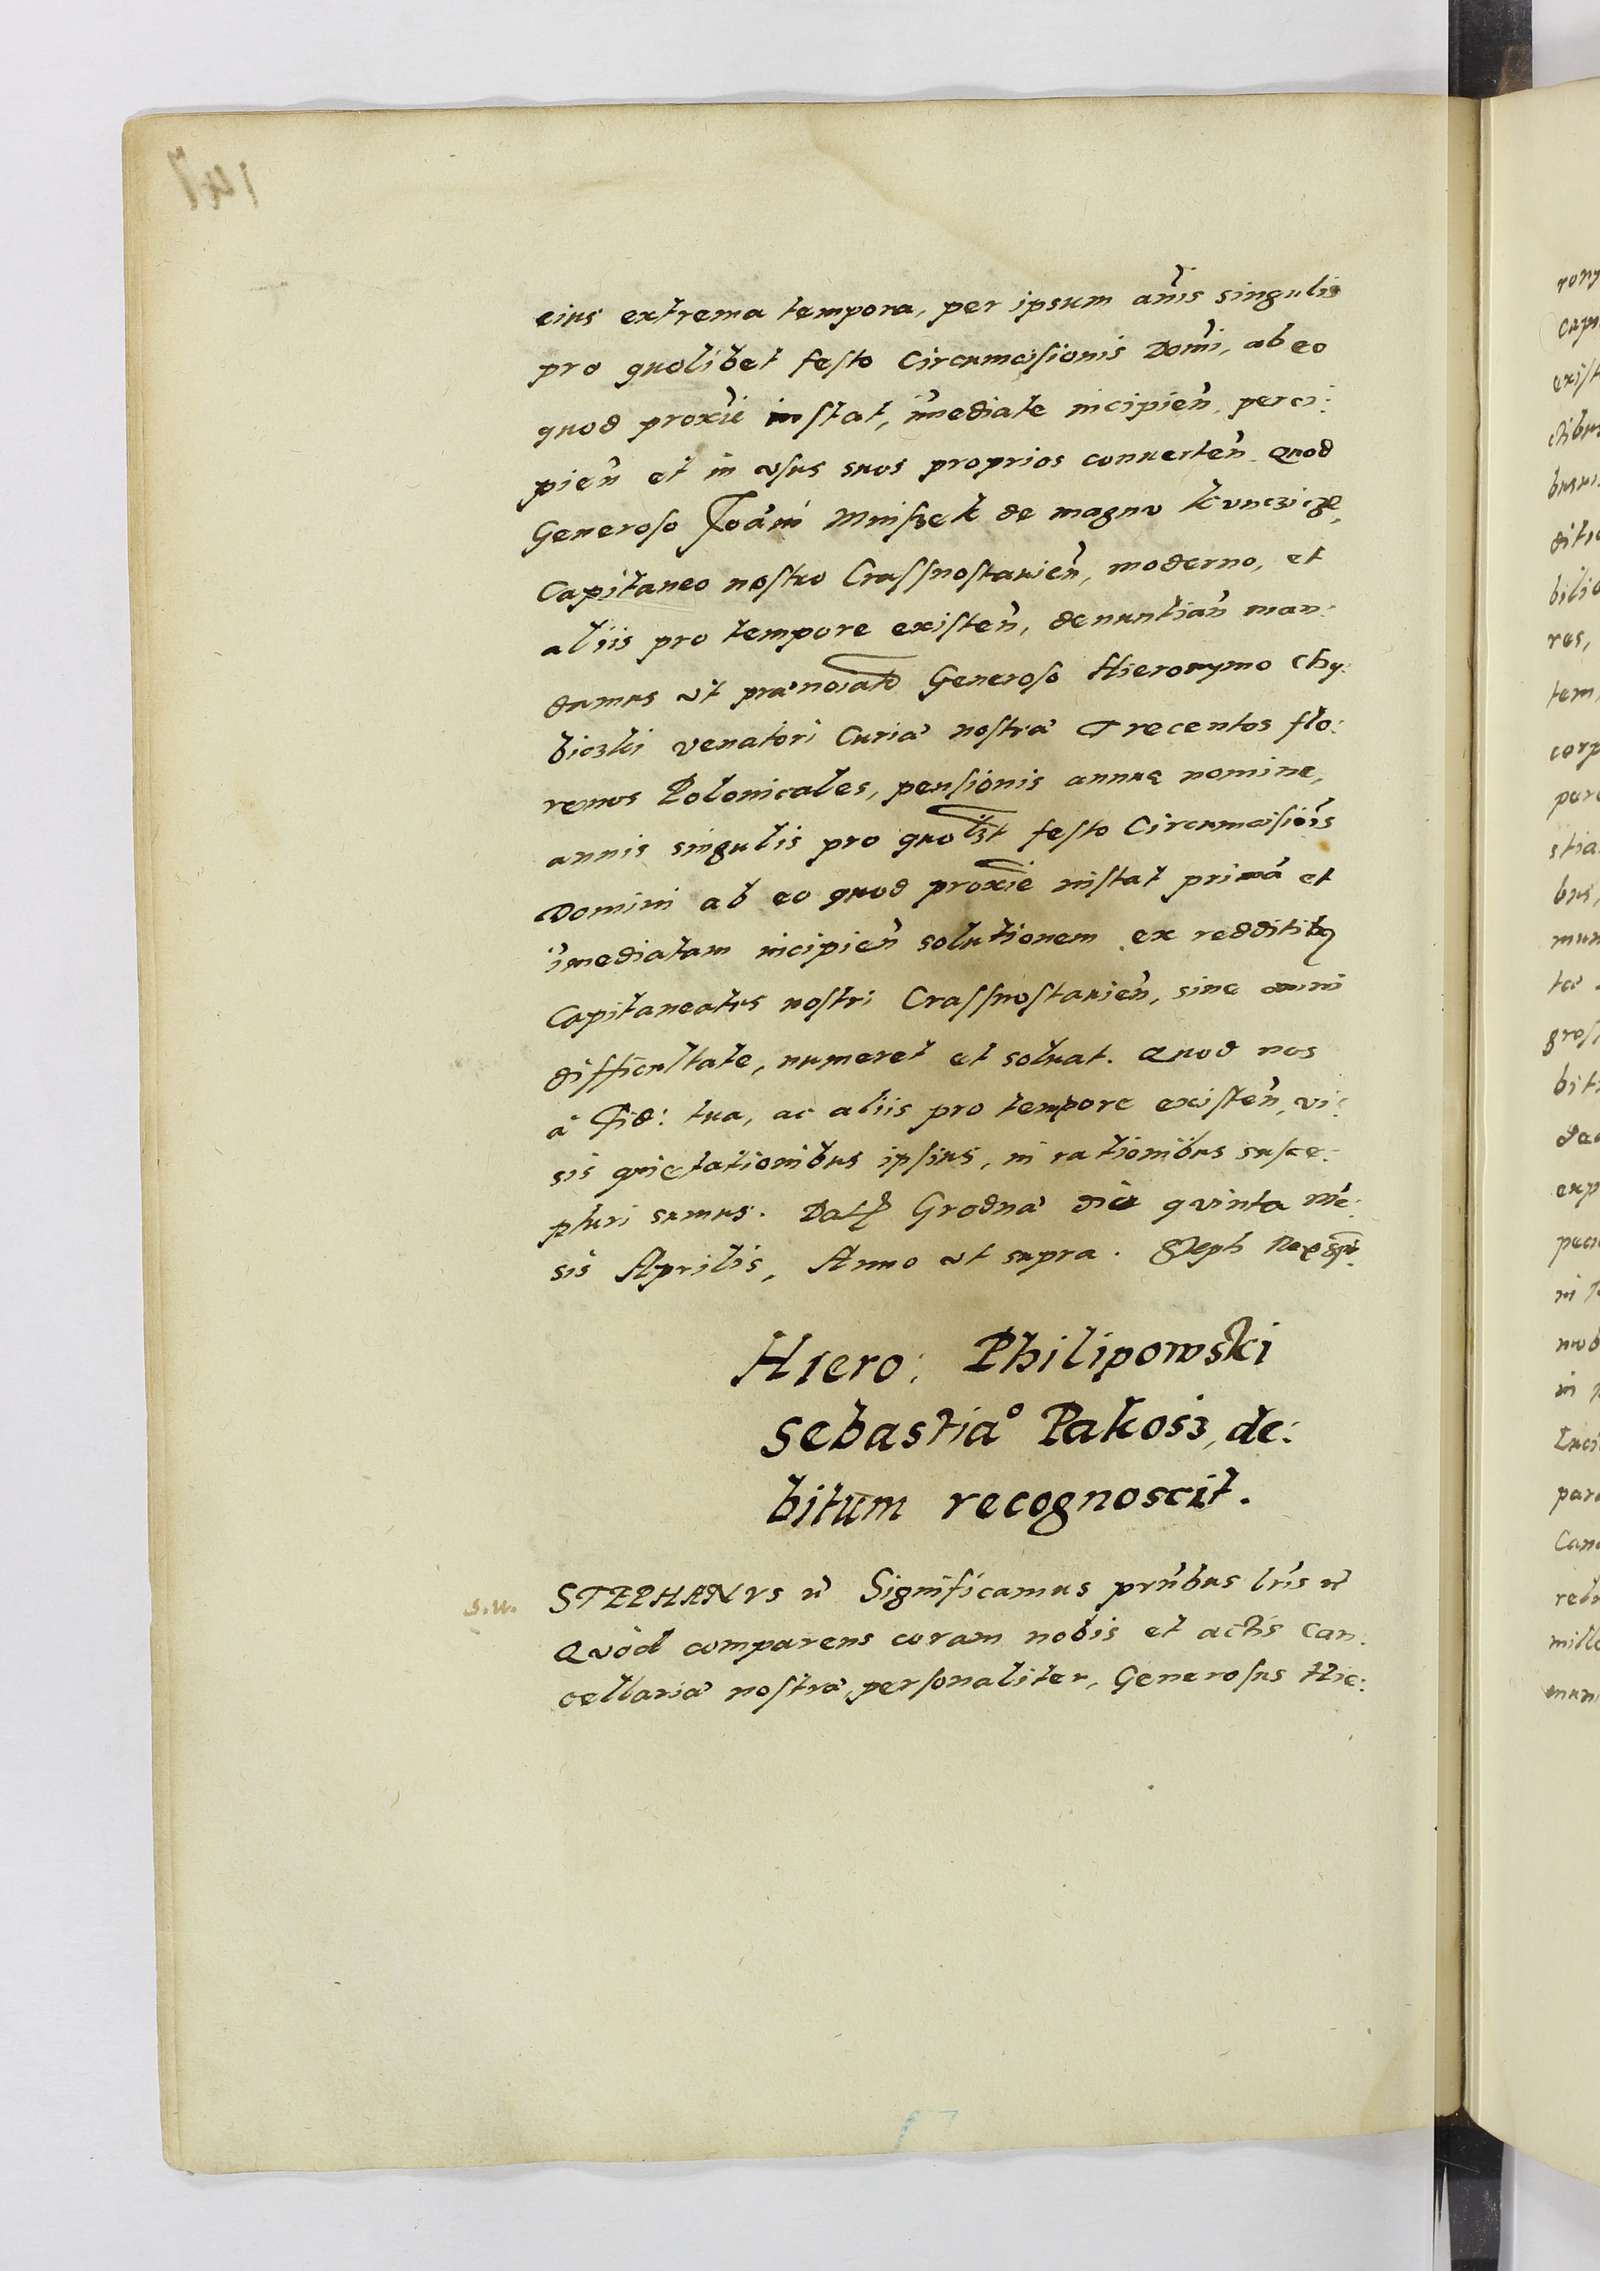 eius extrema tempora, per ipsum anis singulis
pro quolibet festo Circumcisionis Domi, ab eo
quod proxie instat, imediate incipien, perci:
pien et in usus suos proprios converten. Quod
Generoso Joani Mniszek de magno Kuncziče,
Capitaneo nostro Crassnostavien, moderno, et
aliis pro tempore existen, denuntian man:
damus ut prænoiato Generoso Hieronymo Chy:
biczki venatori Curiæ nostræ Trecentos flo:
renos Polonicales, pensionis annuæ nomine,
annis singulis pro quolzt festo Circumcisiois
Domini ab eo quod proxie instat primâ et
imediatam incipien solutionem ex redditibq
Capitaneatus nostri Crassnostavien, sine omni
difficultate, numeret et solvat. Quod nos
à Fid: tua, ac aliis pro tempore existen, vi:
sis quietationibus ipsius, in rationibus susce:
pturi sumus. Dat Grodnæ die quinta me:
sis Aprilis, Anno ut supra. Steph Rex sspt.
Hiero: Philipowski
Sebastiaº Pakosz, de:
bitum recognoscit.
S.W. STEPHANVS ē Significamus prñbus lris ē
Quod comparens coram nobis et actis Can:
cellariæ nostræ personaliter, Generosus Hie: